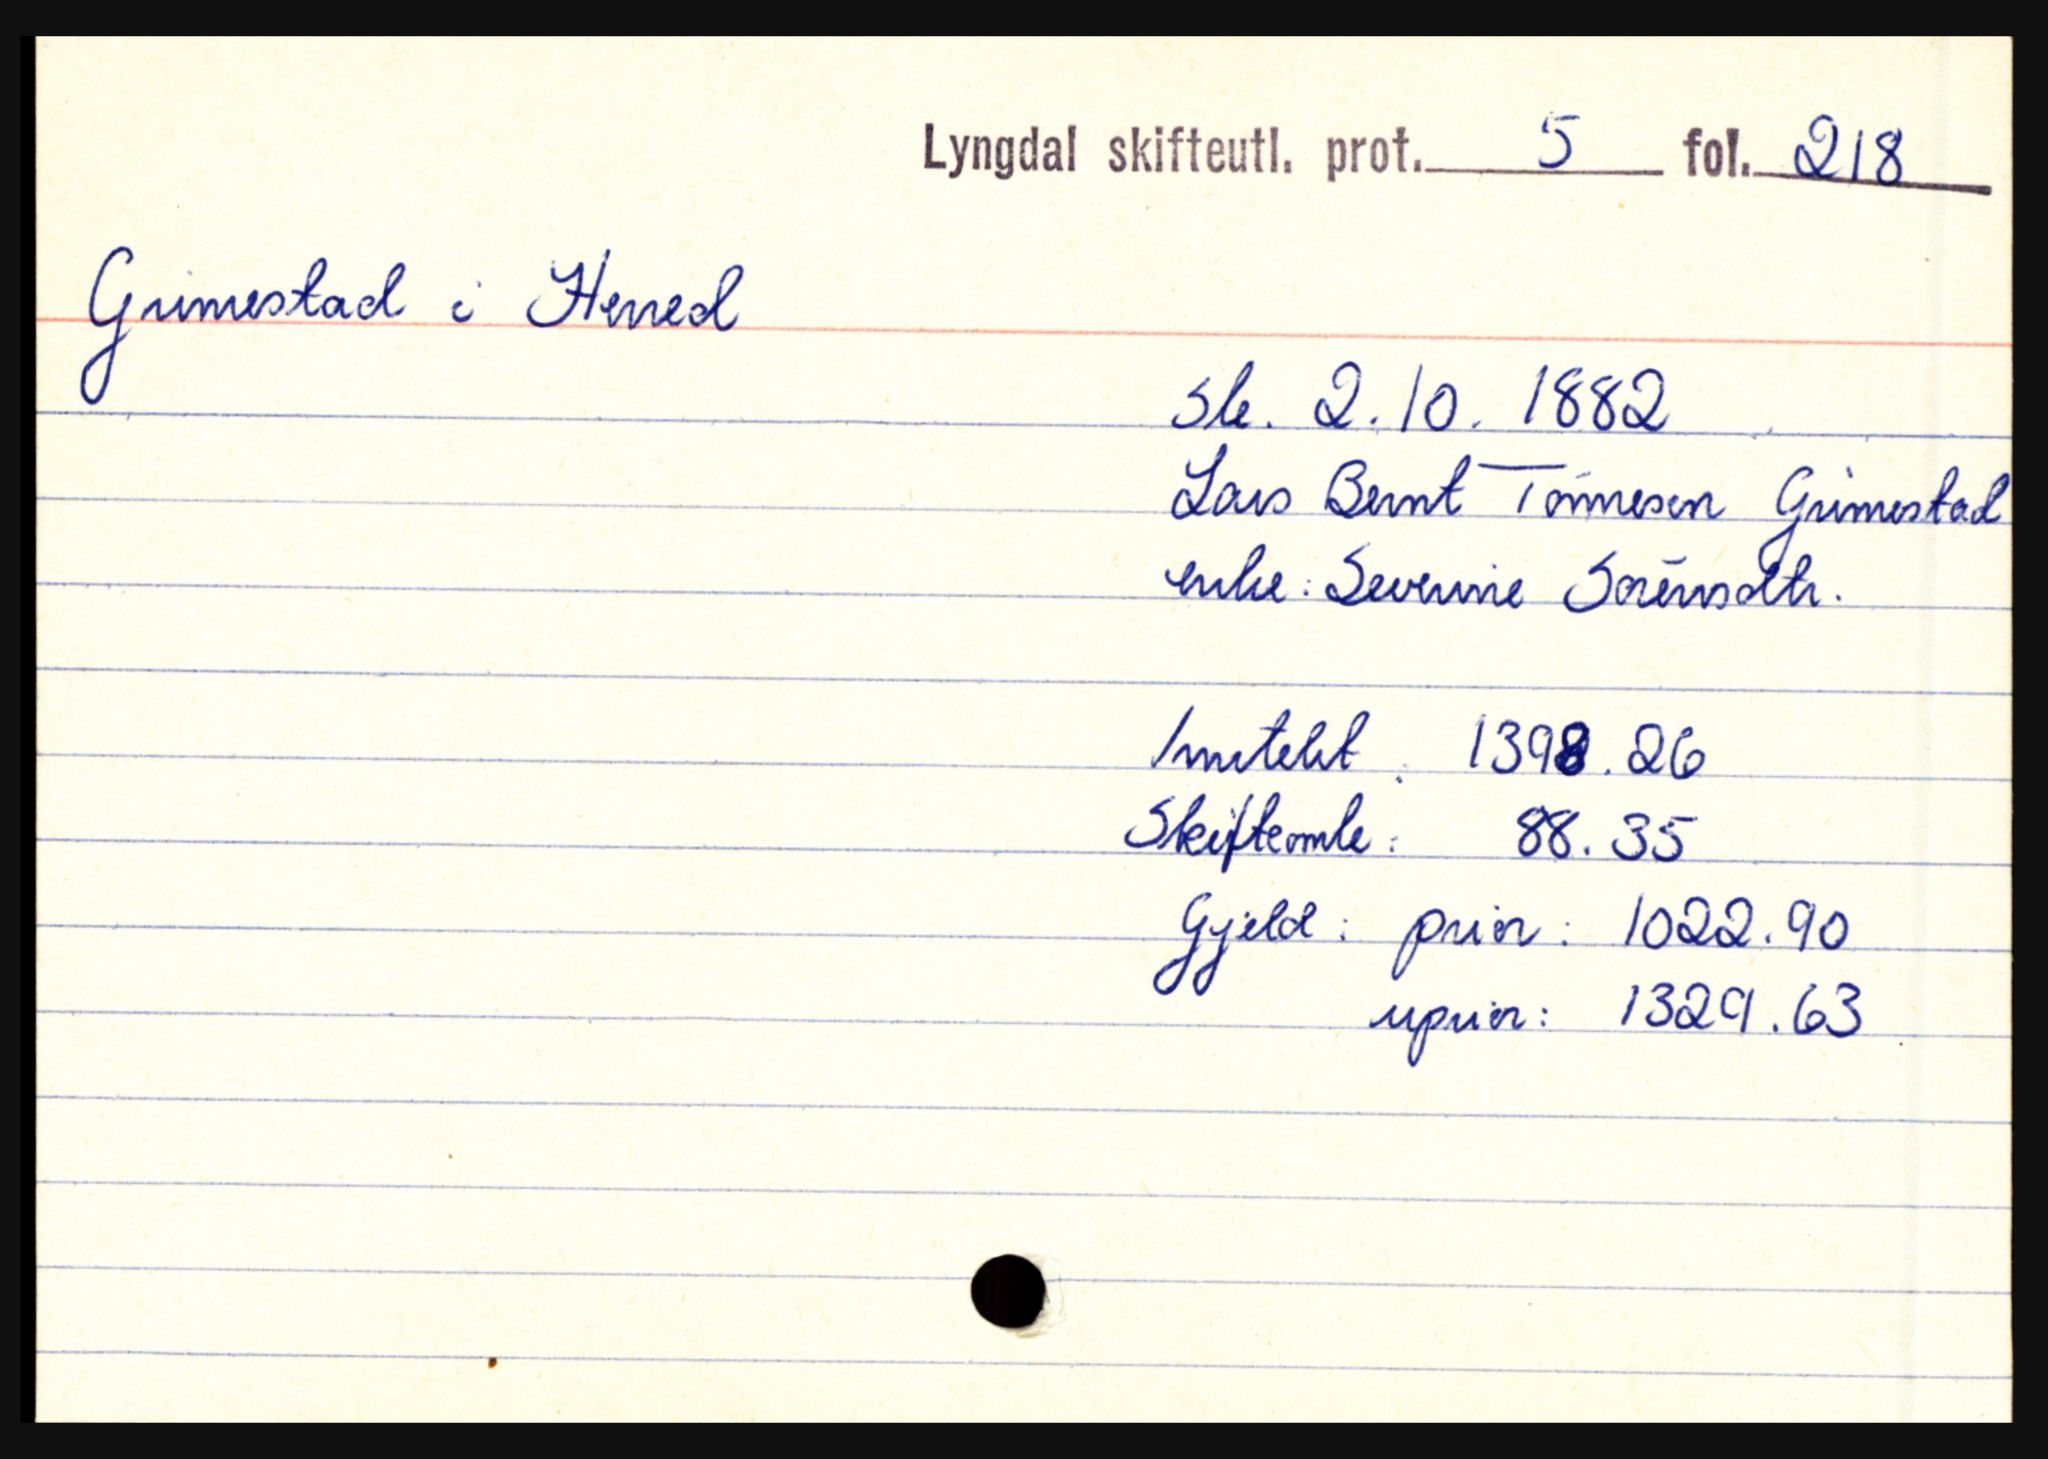 Lyngdal skifteutl. prot. 5 fol. 218
Grimestad i Herred
sk. 2.10.1882
Lars Bernt Tönnesen Grimestad
enke: Severine Sörensdtr.
Inntekt: 1398.26
Skifteomk: 88.35
Gjeld: prior: 1022.90
uprior: 1329.63